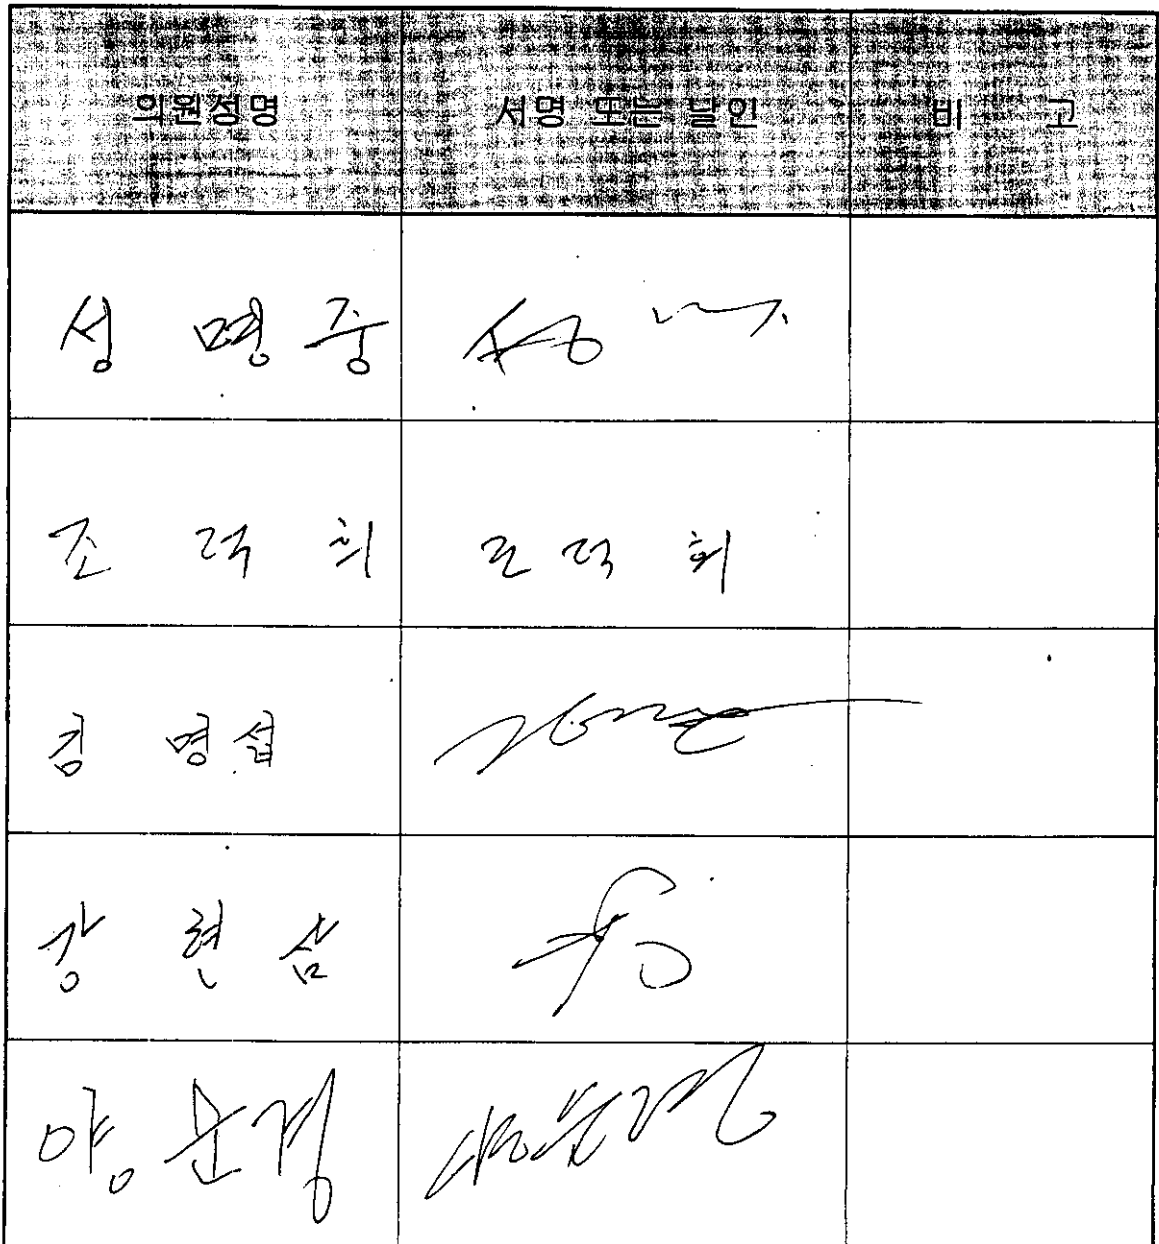 의원성명 서명 또는 날인 비 고
성 명 중
조 덕 희 조 덕 희
김 명섭
강 현 삼
양 문경